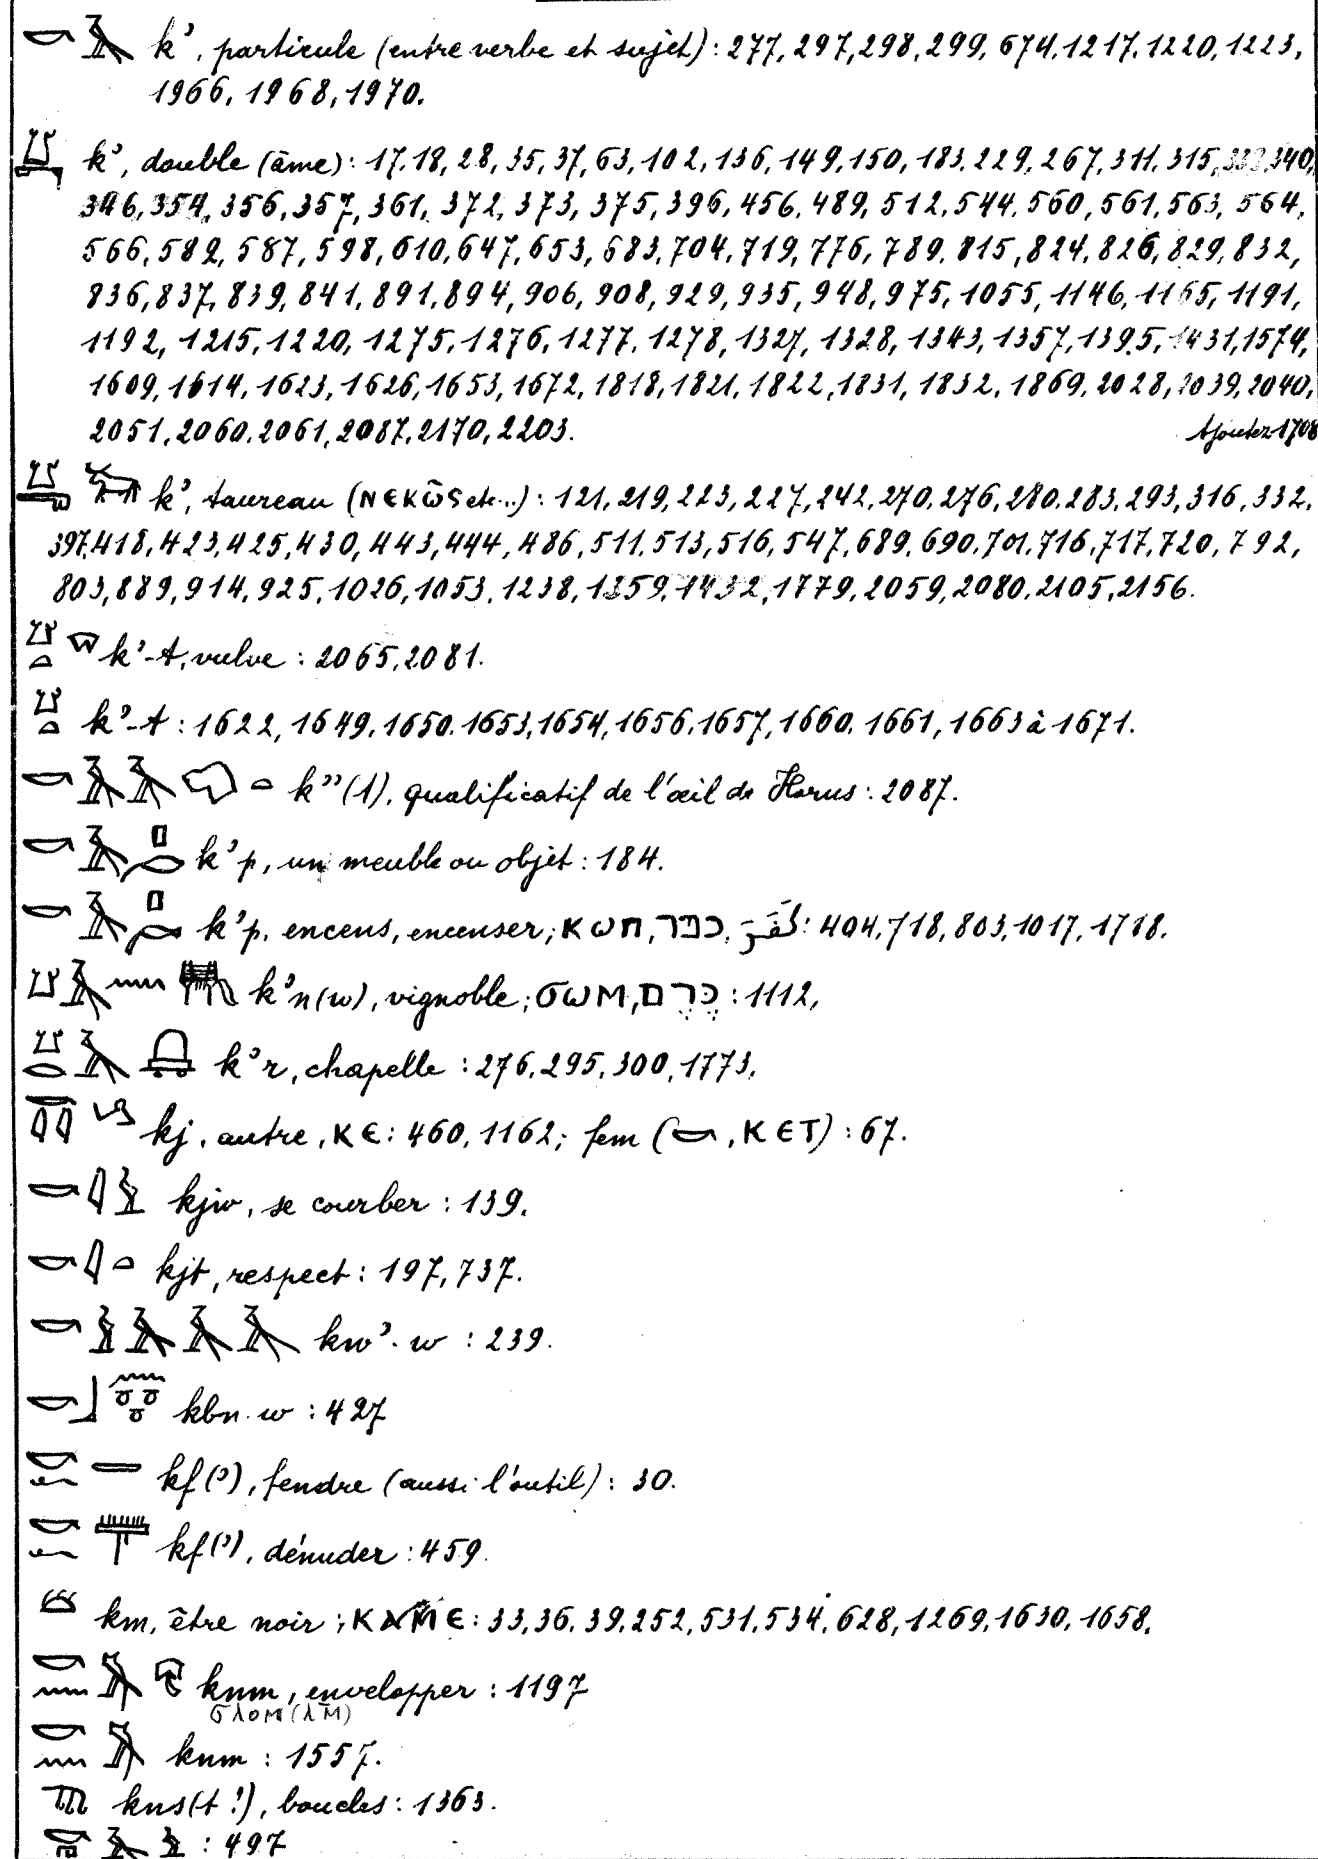 kʾ, particule (entre verbe et sujet) : 277, 297, 298, 299, 674, 1217, 1220, 1223,
1966, 1968, 1970.
kʾ, double (âme) : 17, 18, 28, 35, 37, 63, 102, 136, 149, 150, 183, 229, 267, 311, 315, 340,
346, 354, 356, 357, 361, 372, 373, 375, 396, 456, 489, 512, 544, 560, 561, 563, 564,
566, 582, 587, 598, 610, 647, 653, 683, 704, 719, 776, 789, 815, 824, 826, 829, 832,
836, 837, 839, 841, 891, 894, 906, 908, 929, 935, 948, 975, 1055, 1146, 1165, 1191,
1192, 1215, 1220, 1275, 1276, 1277, 1278, 1327, 1328, 1343, 1357, 1395, 1431, 1574,
1609, 1614, 1623, 1626, 1653, 1672, 1818, 1821, 1822, 1831, 1832, 1869, 2028, 2039, 2040,
2051, 2060, 2061, 2087, 2170, 2203. Ajoutez 1708
kʾ, taureau (ΝЄΚω̄S etc...) : 121, 219, 223, 227, 242, 270, 276, 280, 283, 293, 316, 332,
397, 418, 423, 425, 430, 443, 444, 486, 511, 513, 516, 547, 689, 690, 701, 716, 717, 720, 792,
803, 889, 914, 925, 1026, 1053, 1238, 1359, 1432, 1779, 2059, 2080, 2105, 2156.
kʾ-t, vulve : 2065, 2081.
kʾ-t : 1622, 1649, 1650, 1653, 1654, 1656, 1657, 1660, 1661, 1663 à 1671.
kʾʾ(t), qualificatif de l'œil de Horus : 2087.
kʾp, un meuble ou objet : 184.
kʾp, encens, encenser ; ⲕⲱⲡ, כפר, كَفَرَ : 404, 718, 803, 1017, 1718.
kʾn(w), vignoble ; ϭⲱⲙ, כֶּרֶם : 1112,
kʾr, chapelle : 276, 295, 300, 1773,
kj, autre, ⲕⲉ : 460, 1162 ; fem (, ⲕⲉⲧ) : 67.
kjw, se courber : 139.
kjt, respect : 197, 737.
kwʾ.w : 239.
kbn.w : 427
kf(ʾ), fendre (aussi l'outil) : 30.
kf(ʾ), dénuder : 459.
km, être noir ; ⲕⲁⲙⲉ : 33, 36, 39, 252, 531, 534, 628, 1269, 1630, 1658.
knm, envelopper : 1197
ϭⲗⲟⲙ(ⲗⲙ̄)
knm : 1557.
kns(t ?), boucles : 1363.
: 497